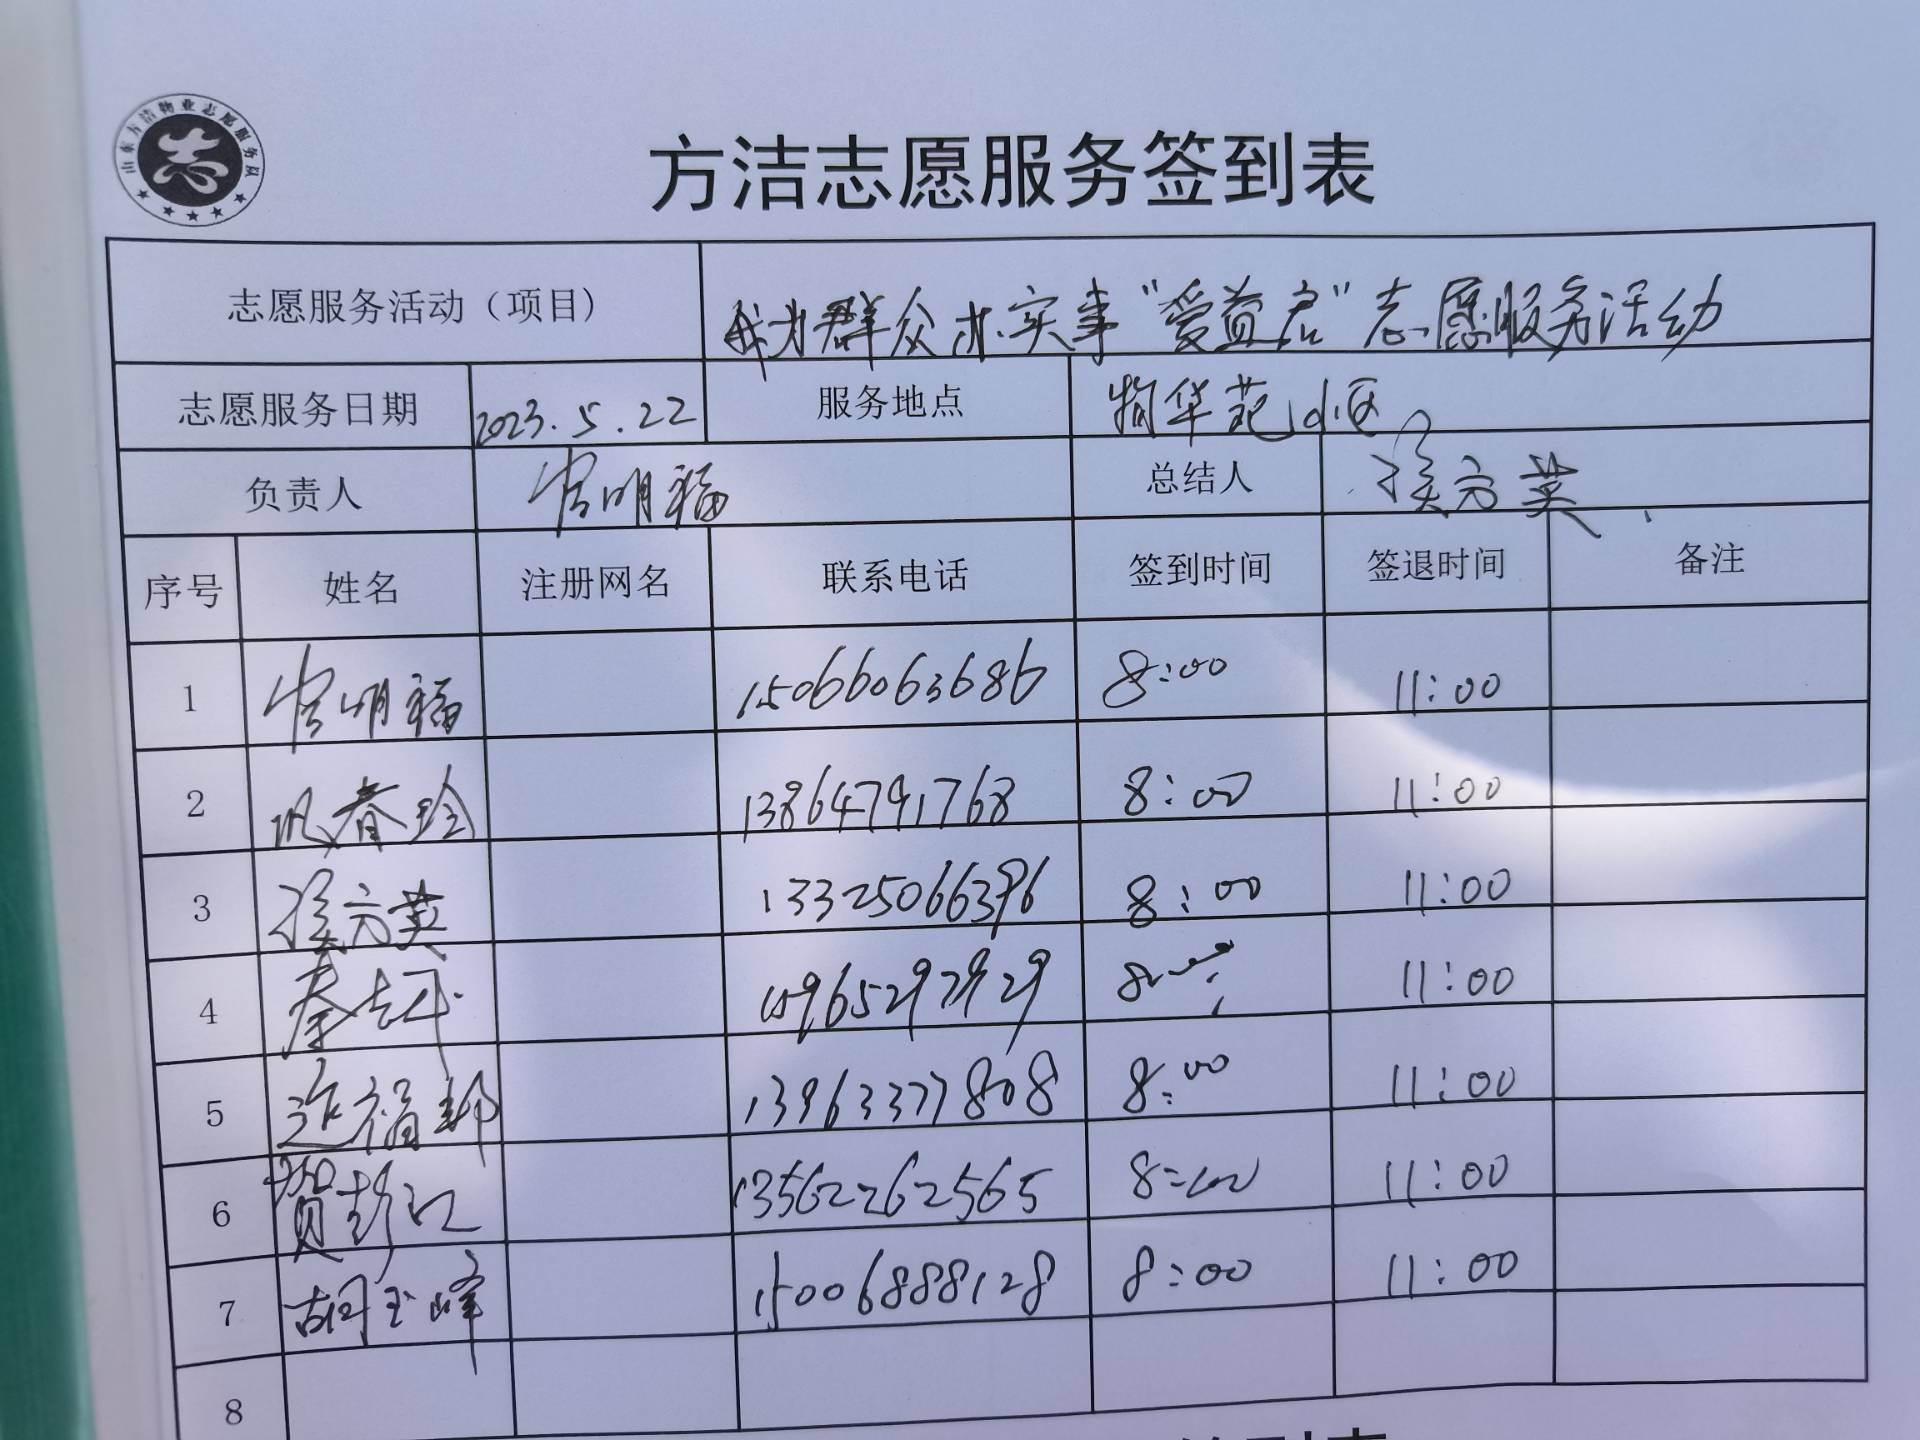 山东方洁物业志愿服务队
志
方洁志愿服务签到表
志愿服务活动（项目） 我为群众办实事“爱益启”志愿服务活动
志愿服务日期 2023.5.22 服务地点 物华苑小区
负责人 明福 总结人 方英
序号 姓名 注册网名 联系电话 签到时间 签退时间 备注
1 明福 15066063686 8:00 11:00
2 春玲 13864791768 8:00 11:00
3 方英 13325066396 8:00 11:00
4 秦 15965297929 11:00
5 福邦 13963377808 8:00 11:00
6 贺彭江 13562262565 8:00 11:00
7 胡玉峰 15006888128 8:00 11:00
8